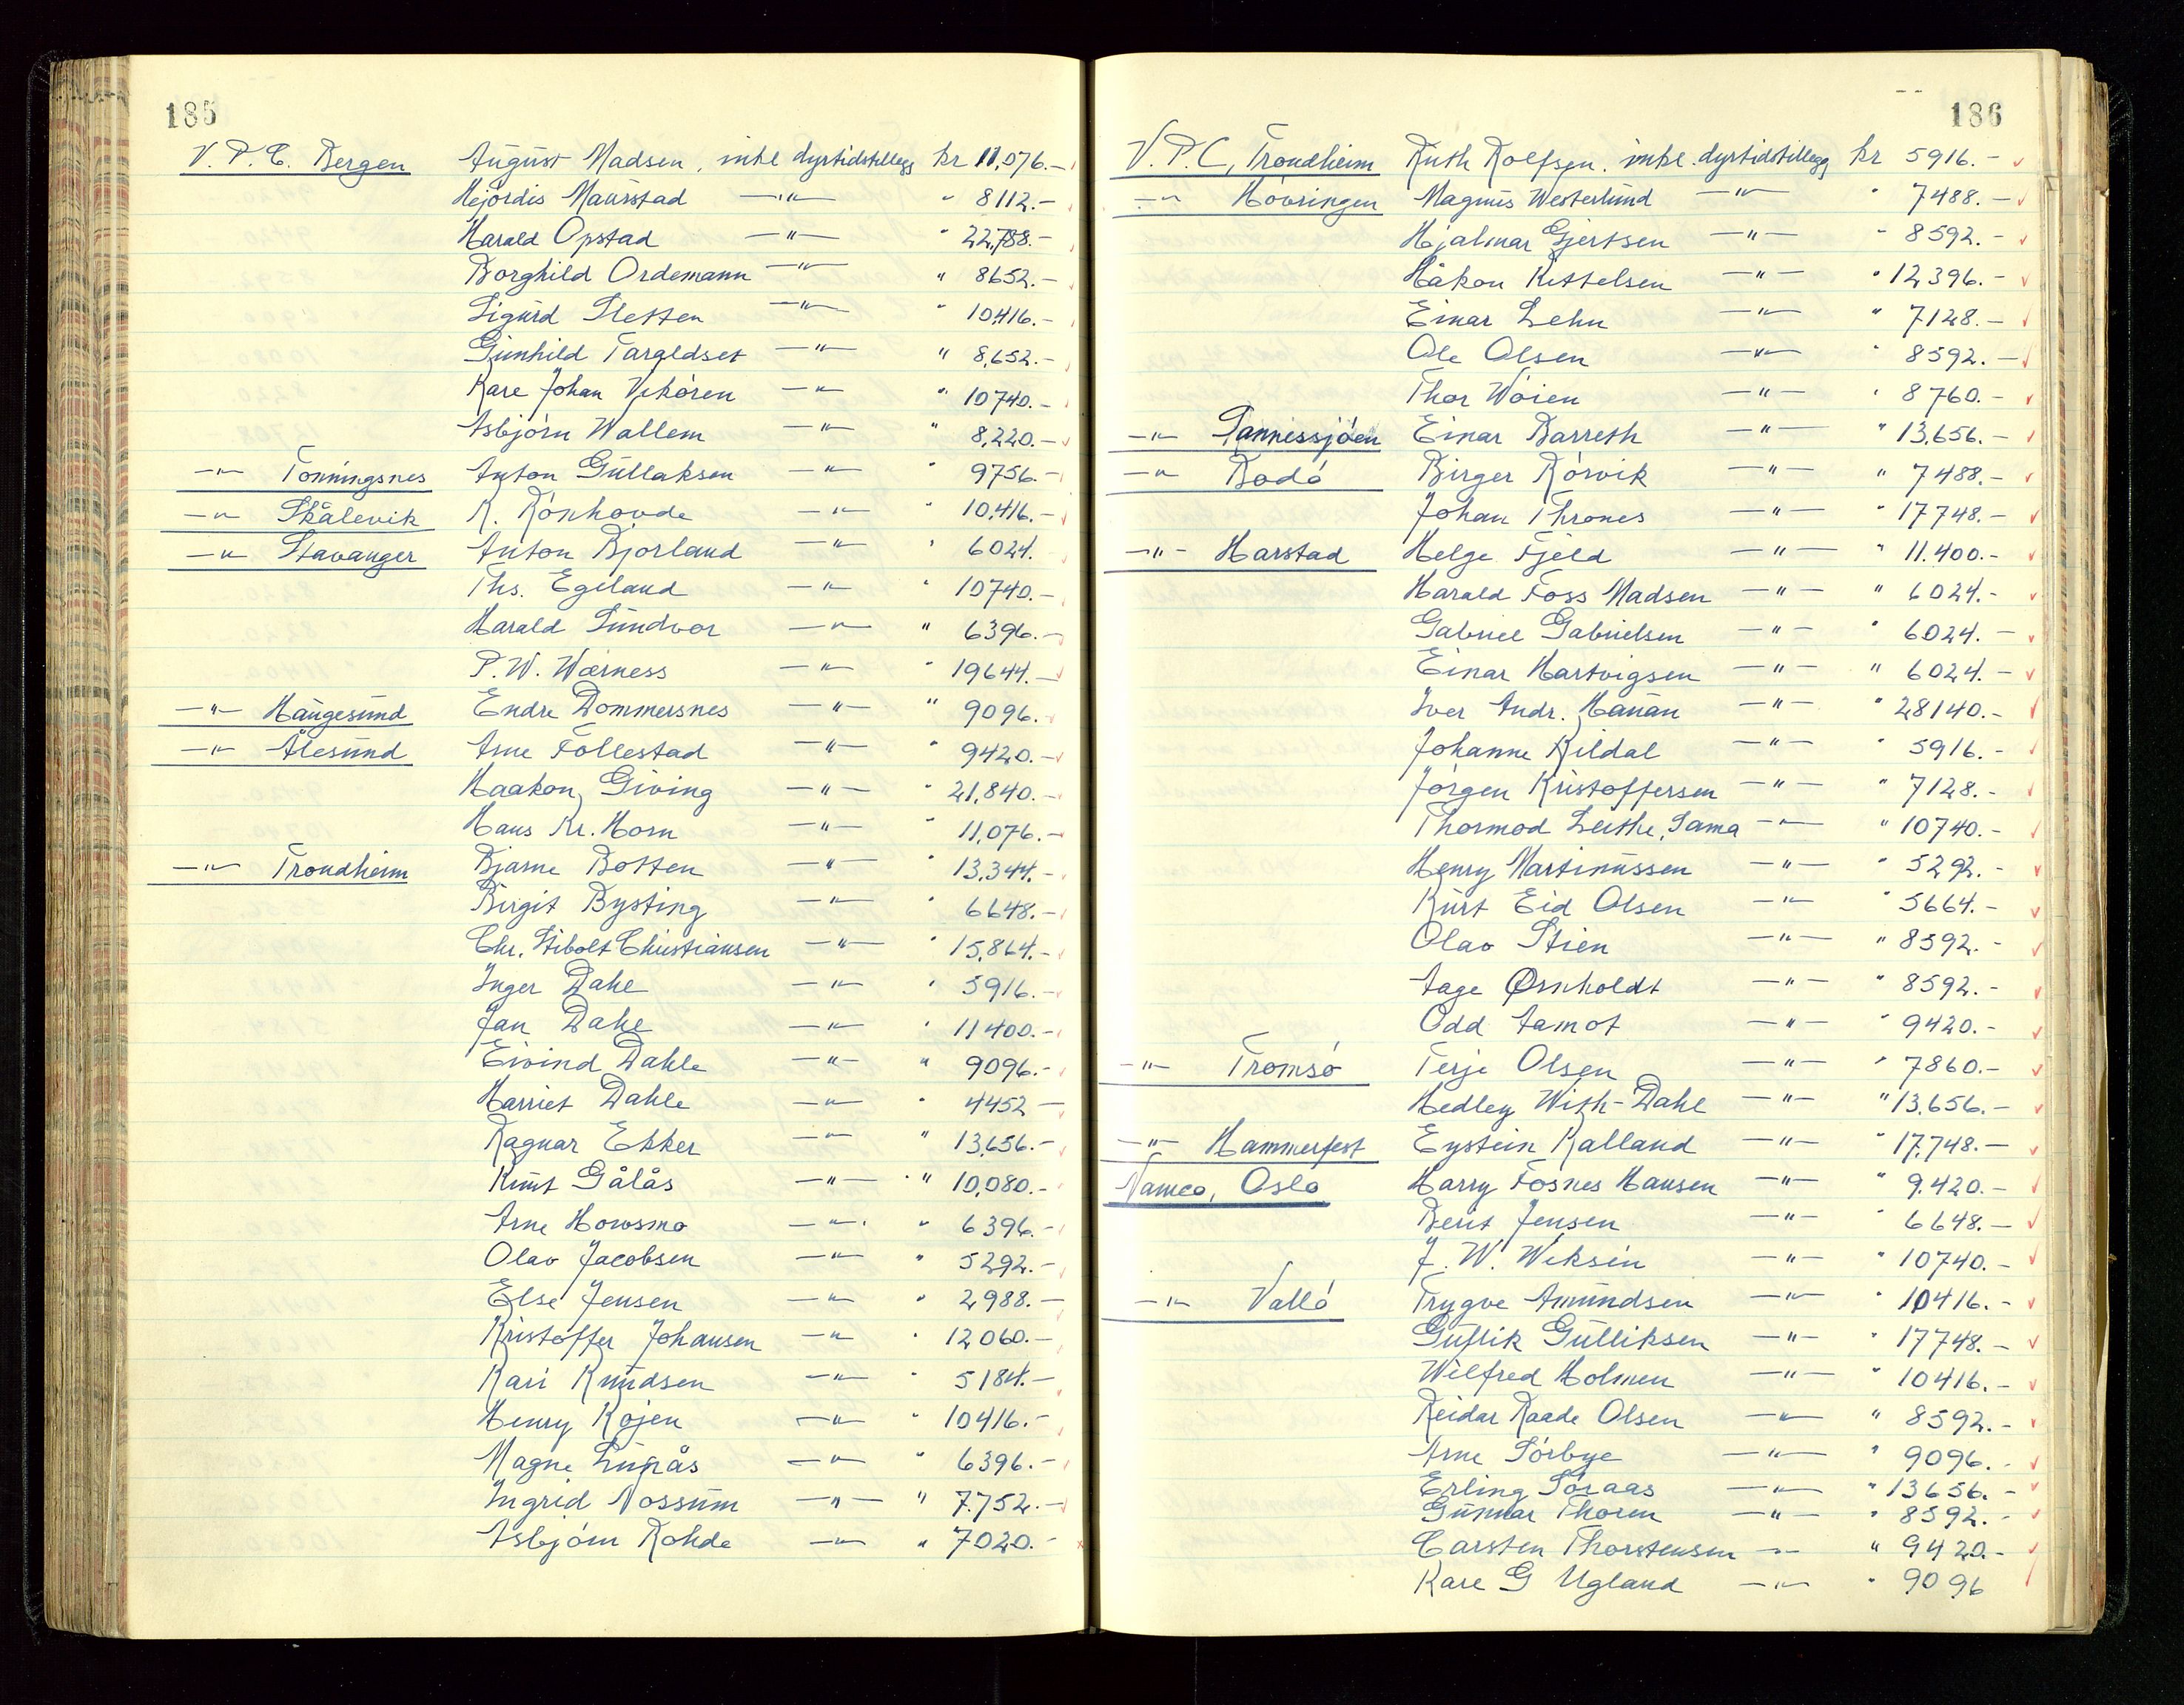 185
V. P. C. Bergen August Madsen, inkl dyrtidstillegg kr 11,076.-
Hejördis Maurstad —"— " 8112.-
Harald Opstad —"— " 22,788.-
Borghild Ordemann —"— " 8652.-
Sigurd Sletten —"— " 10,416.-
Gunhild Taraldset —"— " 8,652.-
Kare Johan Vikören —"— " 10740.-
Asbjörn Wallem —"— " 8,220.-
—"— Tonningsnes Anton Gullaksen —"— " 9756.-
—"— Skålevik K. Rönhovde —"— " 10,416.-
—"— Stavanger Anton Bjorland —"— " 6024.
Ths. Egeland —"— " 10740.-
Harald Sundvor —"— " 6396.-
P. W. Wærness —"— " 19644.-
—"— Haugesund Endre Dommersnes —"— " 9096.
—"— Ålesund Arne Follestad —"— " 9420.-
Haakon Giving —"— " 21,840.-
Hans Kr. Horn —"— " 11,076.-
—"— Trondheim Bjarne Botten —"— " 13,344.-
Birgit Bysting —"— " 6648.-
Chr. Stibolt Christiansen —"— " 15,864.-
Inger Dahl —"— " 5916.-
Jan Dahl —"— " 11400.-
Eivind Dahle —"— " 9096.-
Harriet Dahle —"— " 4452 —
Ragnar Ekker —"— " 13,656.-
Knut Gålås —"— " 10,080.-
Arne Howsmo —"— " 6396.-
Olav Jacobsen —"— " 5292.-
Else Jensen —"— " 2988.-
Kristoffer Johansen —"— " 12060.-
Kari Knudsen —"— " 5184.-
Henry Kojen —"— " 10416.-
Magne Lunås —"— " 6396.-
Ingrid Nossum —"— " 7.752.-
Asbjörn Rohde —"— " 7020.-
186
V. P. C, Trondheim Ruth Rolfsen. inkl. dyrtidstillegg kr 5916.-
—"— Hövringen Magnus Westerlund —"— " 7488.-
Hjalmar Gjertsen —"— " 8592.-
Håkon Kittelsen —"— " 12396.-
Einar Lehn —"— " 7128.-
Ole Olsen —"— " 8592.-
Thor Wöien —"— " 8760.-
—"— Sannessjöen Einar Barreth —"— " 13,656.-
—"— Bodö Birger Rörvik —"— " 7488.-
Johan Thrones —"— " 17748.-
—"— Harstad Helge Fjeld —"— " 11.400.-
Harald Foss Madsen —"— " 6024.-
Gabriel Gabrielsen —"— " 6024.-
Einar Hartvigsen —"— " 6024.-
Iver Andr. Hanan —"— " 28140.-
Johanne Kildal —"— " 5916.-
Jörgen Kristoffersen —"— " 7128.-
Thormod Leithe, Sama —"— " 10740.-
Henry Martinussen —"— " 5292.-
Kurt Eid Olsen —"— " 5664.-
Olav Stien —"— " 8592.-
Aage Ørnholdt —"— " 8592.-
Odd Aamot —"— " 9420.-
—"— Tromsö Terje Olsen —"— " 7860.-
Hedley With-Dahl —"— " 13.656.-
—"— Hammerfest Eystein Kalland —"— " 17.748.-
Namco, Oslo Harry Fosnes Hansen —"— " 9.420.-
Berit Jensen —"— " 6648.-
J. W. Weksin —"— " 10740.-
—"— Vallö Trygve Amundsen —"— " 10416.-
Gullik Gulliksen —"— " 17748.-
Wilfred Holmen —"— " 10416.-
Reidar Raade Olsen —"— " 8592.-
Arne Sörbye —"— " 9096.-
Erling Söraas —"— " 13656.-
Gunnar Thoren —"— " 8592.-
Carsten Thorstensen —"— " 9420.-
Kare G Ugland —"— " 9096